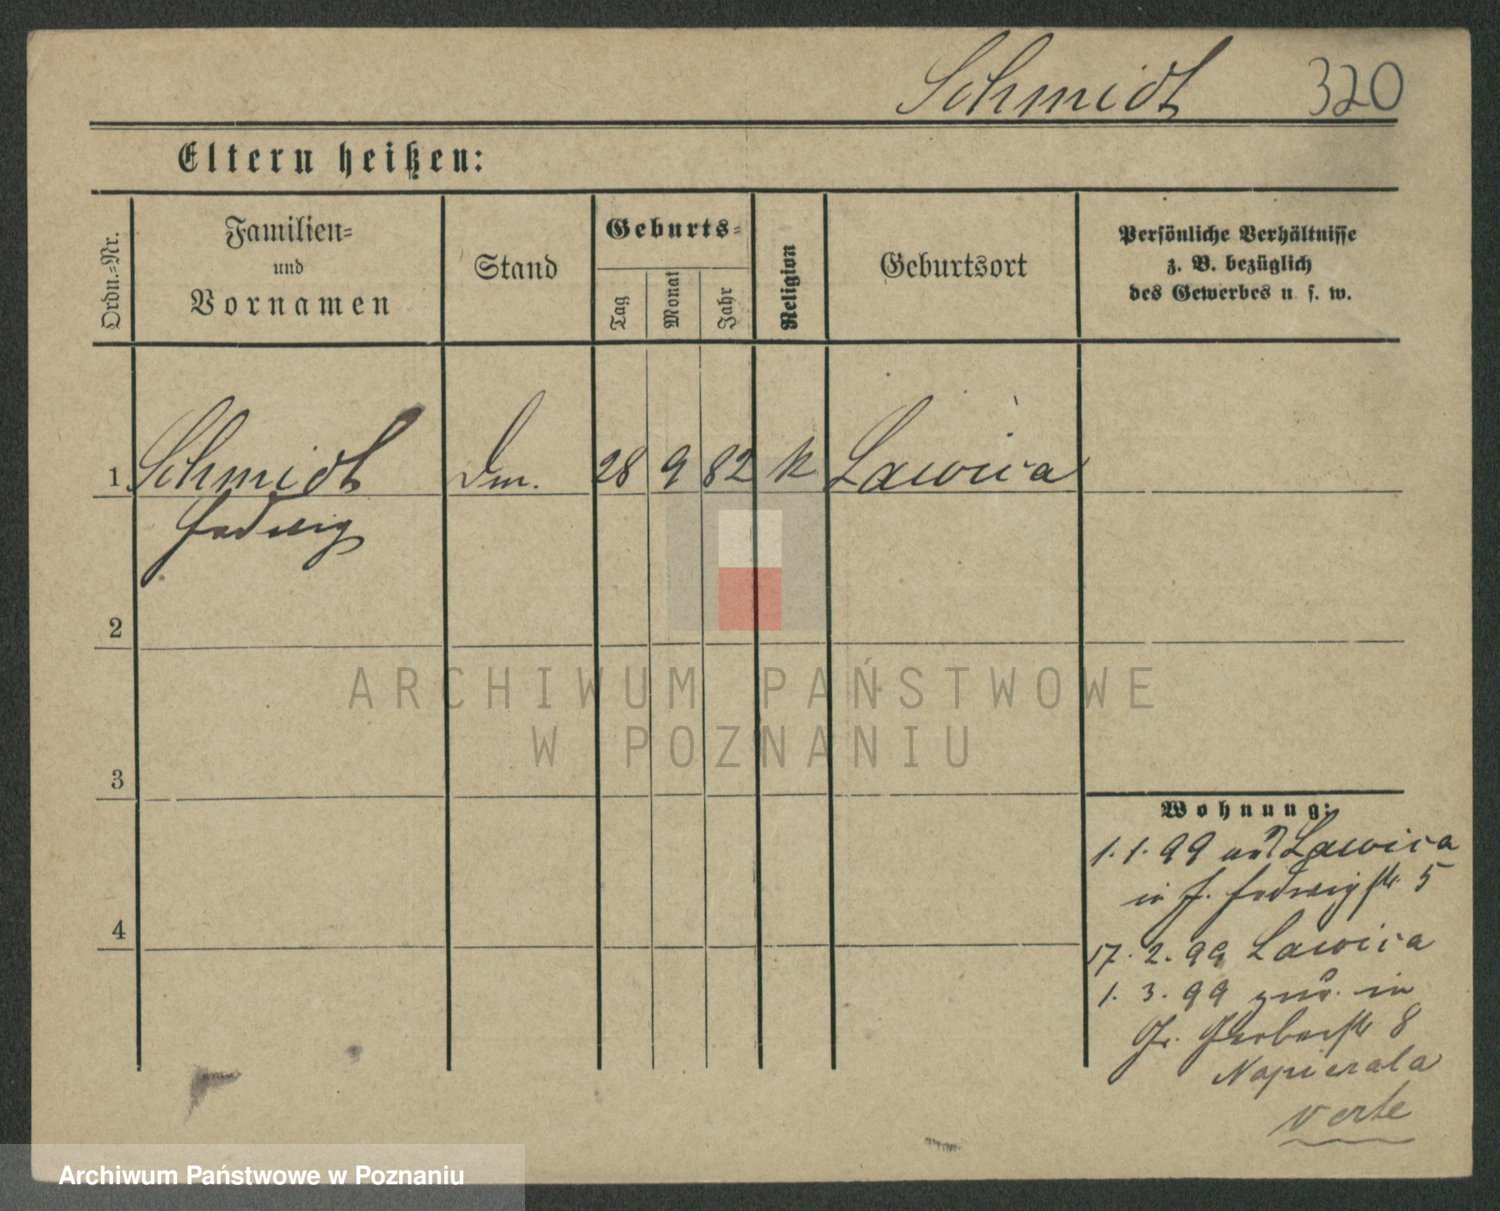 Schmidt 320
Eltern heißen:
Ordn.-Nr.
Familien-
und
Vornamen
Stand
Geburts-
Tag
Monat
Jahr
Religion
Geburtsort
Persönliche Verhältnisse
z. B. bezüglich
des Gewerbes u. s. w.
1 Schmidt 28 9 82 k Lawica
Hedwig
2
ARCHIWUM PAŃSTWOWE
W POZNANIU
3
Wohnung:
1. 1. 99 aus Lawica
in J. Hedwigstr 5
17. 2. 99 Lawica
4
1. 3. 99 zur. in
Gr. Gerberstr 8
Napierala
verte
Archiwum Państwowe w Poznaniu